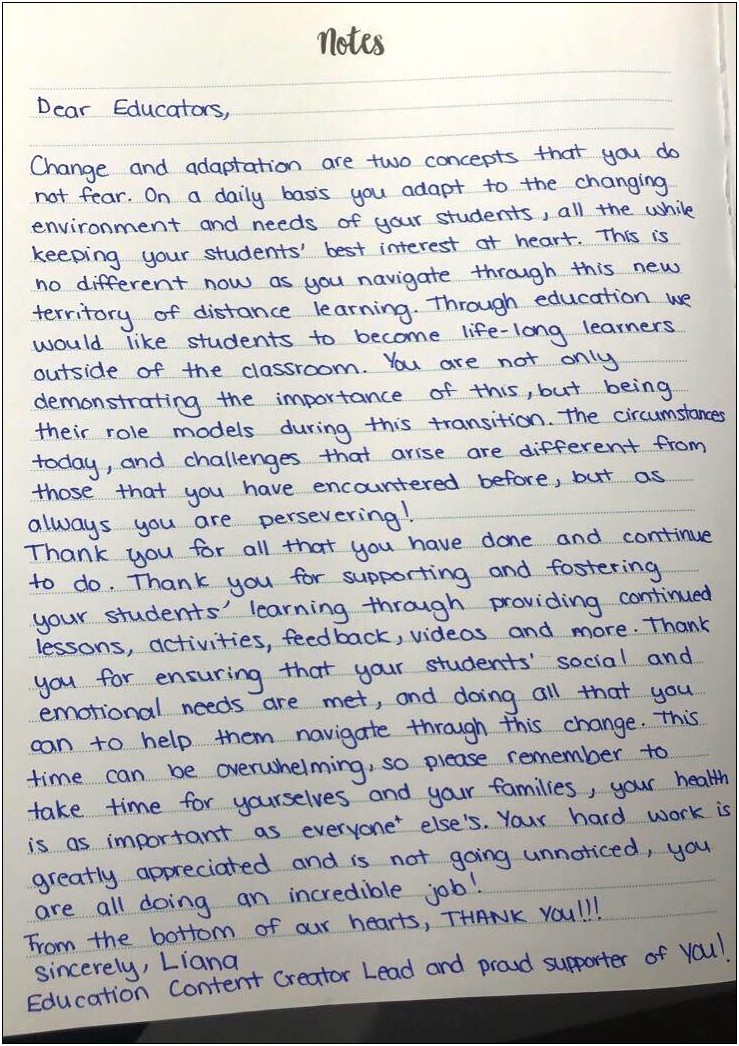 Notes
Dear Educators,
Change and adaptation are two concepts that you do
not fear. On a daily basis you adapt to the changing
environment and needs of your students, all the while
keeping your students' best interest at heart. This is
no different now as you navigate through this new
territory of distance learning. Through education we
would like students to become life-long learners
outside of the classroom. You are not only
demonstrating the importance of this, but being
their role models during this transition. The circumstances
today, and challenges that arise are different from
those that you have encountered before, but as
always you are persevering!
Thank you for all that you have done and continue
to do. Thank you for supporting and fostering
your students' learning through providing continued
lessons, activities, feedback, videos and more. Thank
you for ensuring that your students' social and
emotional needs are met, and doing all that you
can to help them navigate through this change. This
time can be overwhelming, so please remember to
take time for yourselves and your families, your health
is as important as everyone else's. Your hard work is
greatly appreciated and is not going unnoticed, you
are all doing an incredible job!
From the bottom of our hearts, THANK YOU!!!
Sincerely, Liana
Education Content Creator Lead and proud supporter of you!